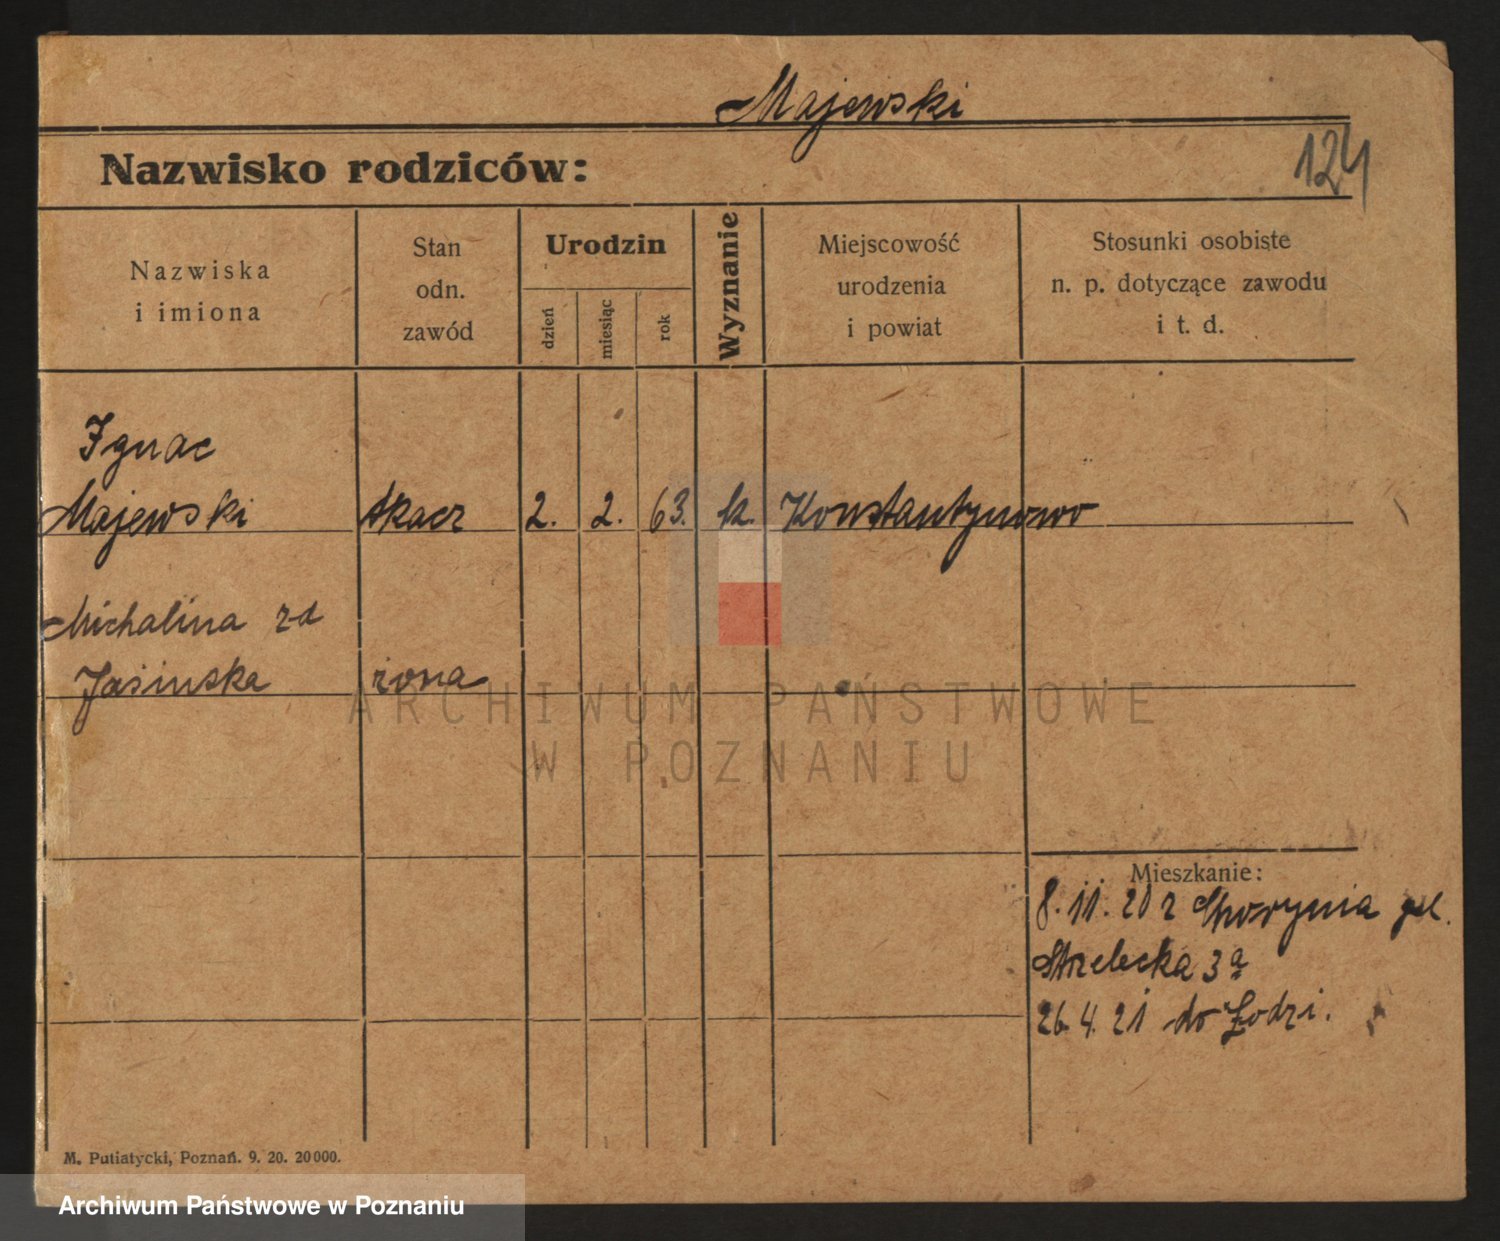 Majewski
124
Nazwisko rodziców:
Nazwiska
i imiona
Stan
odn.
zawód
Urodzin
dzień
miesiąc
rok
Wyznanie
Miejscowość
urodzenia
i powiat
Stosunki osobiste
n. p. dotyczące zawodu
i t. d.
Ignac
Majewski tkacz 2. 2. 63. k. Konstantynowo
Michalina zd
Jasinska żona
ARCHIWUM PAŃSTWOWE
W POZNANIU
Mieszkanie:
8.11.20 z
Strzelecka 3a
26.4.21 do Łodzi.
M. Putiatycki, Poznań. 9. 20. 20000.
Archiwum Państwowe w Poznaniu